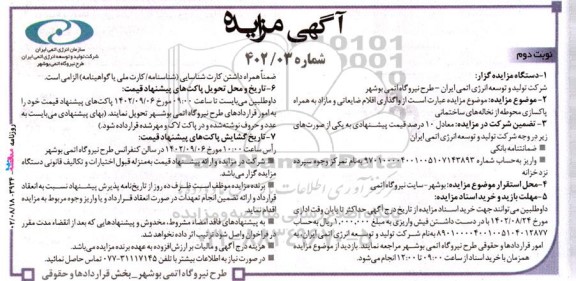 آگهی مزایده
شماره ۴۰۲/۰۳
نوبت دوم
سازمان انرژی اتمی ایران
شرکت تولید و توسعه انرژی اتمی ایران
طرح نیروگاه اتمی بوشهر
۱-دستگاه مزایده گزار:
شرکت تولید و توسعه انرژی اتمی ایران -طرح نیروگاه اتمی بوشهر
۲-موضوع مزایده: موضوع مزایده عبارت است از واگذاری اقلام ضایعاتی و مازاد به همراه
پاکسازی محوطه از نخاله‌های ساختمانی
۳- تضمین شرکت در مزایده: معادل ۱۰ درصد قیمت پیشنهادی به یکی از صورت‌های
زیر در وجه شرکت تولید و توسعه انرژی اتمی ایران
ضمانتنامه بانکی
واریز به حساب شماره به نام تمرکز وجوه سپرده
نزد خزانه
۴-محل استقرار موضوع مزایده: بوشهر-سایت نیروگاه اتمی
۵-مهلت بازید و خرید اسناد مزایده:
داوطلبین می توانند جهت خرید اسناد مزایده از تاریخ درج آگهی حداکثر تا پایان وقت اداری
مورخ ۱۴۰۲/۰۸/۲۴ با در دست داشتن فیش واریزی به مبلغ ۱,۰۰۰,۰۰۰ ریال به حساب
به نام شرکت تولید و توسعه انرژی اتمی ایران، به
امور قراردادها و حقوقی طرح نیروگاه اتمی بوشهر مراجعه نمایند. بازدید از موضوع مزایده
همزمان با خرید اسناد از ساعت ۰۹:۰۰ تا ۱۲:۰۰ انجام می‌شود.
ضمناً همراه داشتن کارت شناسایی (شناسنامه/ کارت ملی یا گواهینامه) الزامی است.
۶-تاریخ و محل تحویل پاکت‌های پیشنهاد قیمت:
داوطلبین می‌بایست تا ساعت ۰۹:۰۰ مورخ ۱۴۰۲/۰۹/۰۶ پاکت‌های پیشنهاد قیمت خود را
به امور قراردادهای طرح نیروگاه اتمی بوشهر تحویل نمایند. (بهای پیشنهادی می‌بایست به
عدد و حروف نوشته شده و در پاکت لاک و مهر شده قرار داده شود.)
۷-تاریخ گشایش پاکت‌های پیشنهاد قیمت:
رأس ساعت ۱۰:۰۰ مورخ ۱۴۰۲/۰۹/۰۶ در سالن کنفرانس طرح نیروگاه اتمی بوشهر
شرکت در مزایده و ارائه پیشنهاد قیمت به منزله قبول اختیارات و تکالیف قانونی دستگاه
مزایده گزار می‌باشد.
برنده مزایده موظف است ظرف ده روز از تاریخ نامه پذیرش پیشنهاد نسبت به انعقاد
قرارداد و ارائه تضمین انجام تعهدات در صورت انعقاد قرارداد و یا واریز وجوه مربوط به مزایده
اقدام نماید.
به پیشنهادهای فاقد امضاء، مشروط، مخدوش و پیشنهادهایی که بعد از انقضاء مدت مقرر
در فراخوان واصل شود ترتیب اثر داده نخواهد شد.
هزینه درج آگهی و مالیات بر ارزش افزوده به عهده برنده مزایده می‌باشد.
در صورت نیاز به اطلاعات بیشتر با تلفن ۳۱۱۱۷۱۴۵-۰۷۷ تماس حاصل نمائید.
طرح نیروگاه اتمی بوشهر_بخش قراردادها و حقوقی